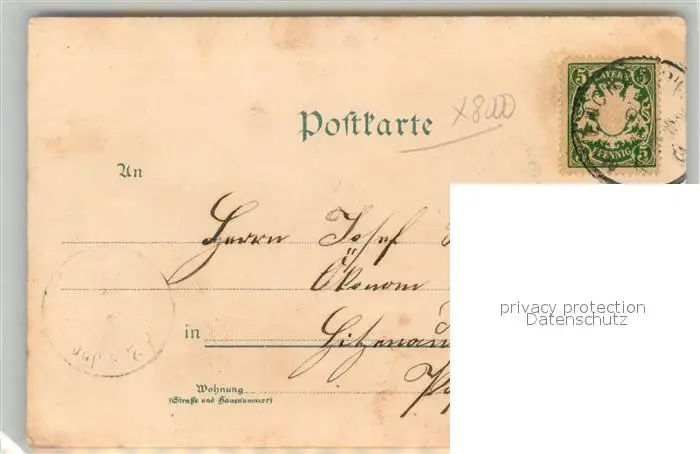 5 BAYERN 5
PFENNIG 5
x800
Postkarte
An
Herrn Josef
Ökonom
in Hitzenau
Wohnung
(Straße und Hausnummer)
privacy protection
Datenschutz